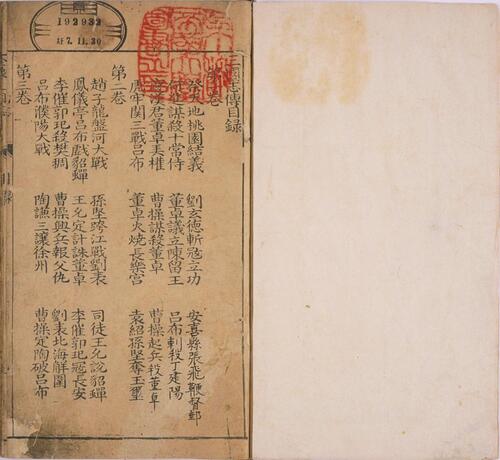 三國志傳目錄
第一卷
祭天地桃園結義 劉玄德斬寇立功 安喜縣張飛鞭督郵
何進謀殺十常侍 董卓議立陳留王 呂布刺殺丁建陽
廢漢君董卓弄權 曹操謀殺董卓 曹操起兵殺董卓
虎牢關三戰呂布 董卓火燒長樂宮 袁紹孫堅奪玉璽
第二卷
趙子龍盤河大戰 孫堅跨江戰劉表 司徒王允說貂蟬
鳳儀亭呂布戲貂蟬 王允定計誅董卓 李傕郭汜寇長安
李傕郭汜殺樊稠 曹操興兵報父仇 劉表北海解圍
呂布濮陽大戰 陶謙三讓徐州 曹操定陶破呂布
第三卷
192932
昭7.11.30